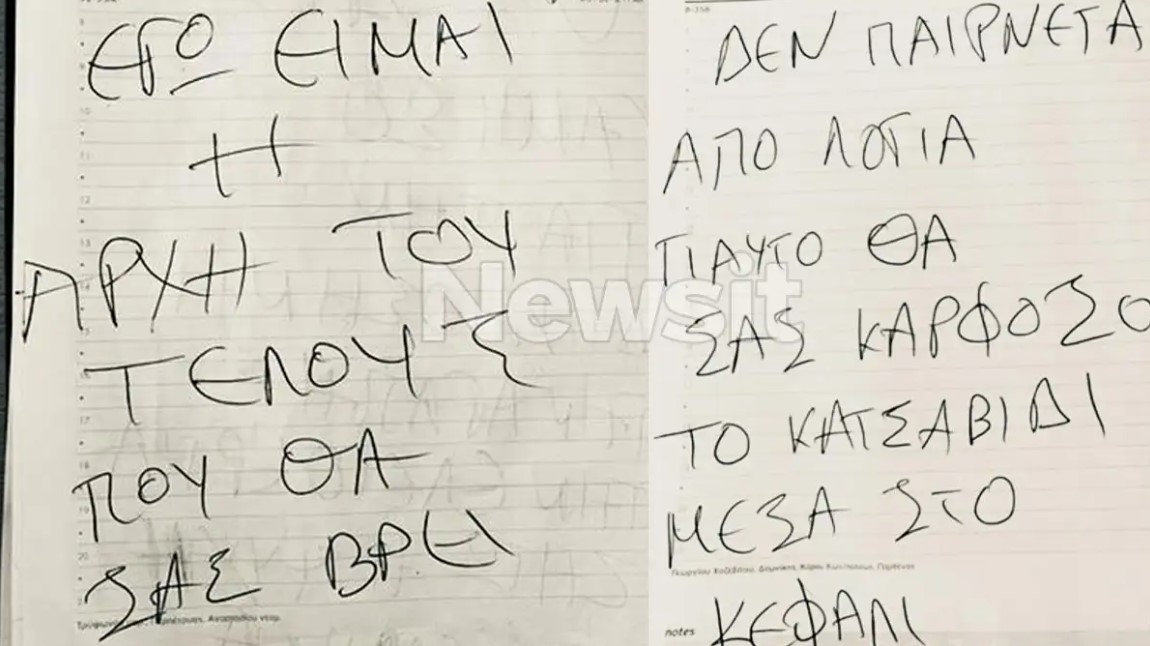 ΕΓΩ ΕΙΜΑΙ
Η
ΑΡΧΗ ΤΟΥ
ΤΕΛΟΥΣ
ΠΟΥ ΘΑ
ΣΑΣ ΒΡΕΙ
ΔΕΝ ΠΑΙΡΝΕΤΑ
ΑΠΟ ΛΟΓΙΑ
ΓΙΑΥΤΟ ΘΑ
ΣΑΣ ΚΑΡΦΟΣΟ
ΤΟ ΚΑΤΣΑΒΙΔΙ
ΜΕΣΑ ΣΤΟ
ΚΕΦΑΛΙ
notes
Newsit